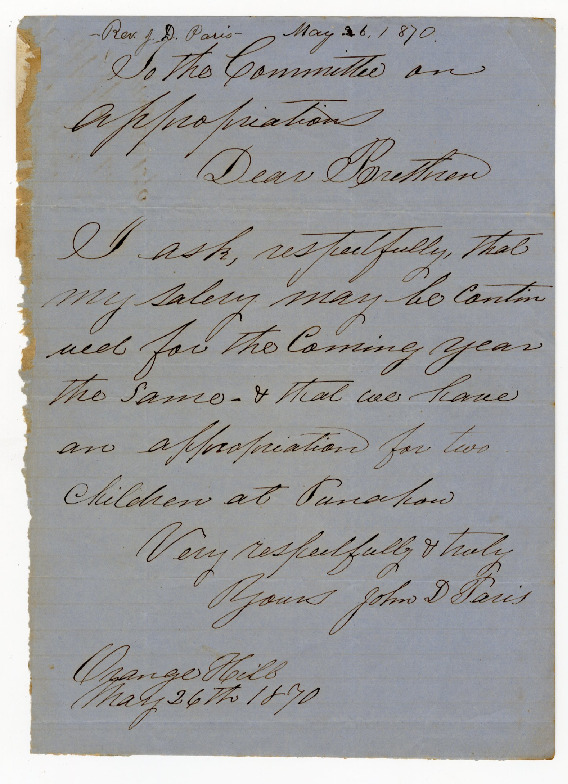 -Rev. J. D. Paris-   May 26, 1870.
To the Committee on
appropriations
Dear Brethren
I ask, respectfully, that
my salery may be contin
ued for the Coming year
the same - & that we have
an appropriation for two
children at Punahou
Very respectfully & truly
Yours John D Paris
Orange Hill
May 26th 1870